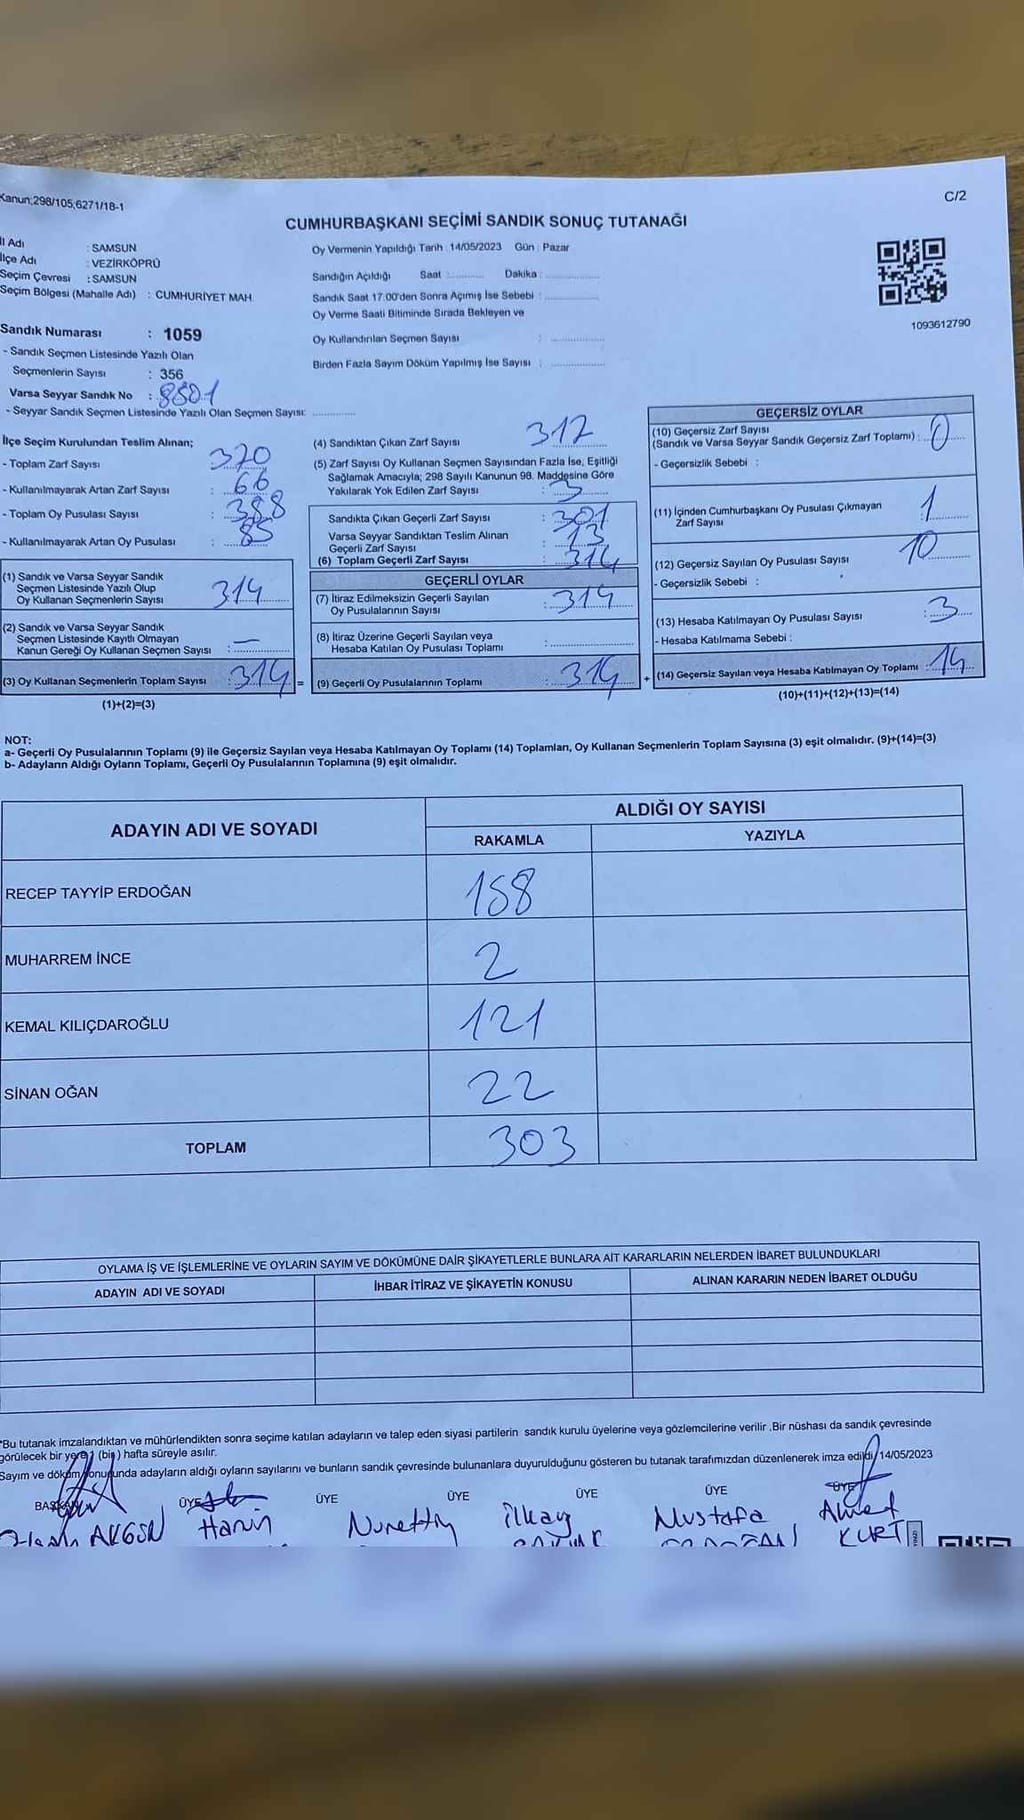 Kanun;298/105;6271/18-1
C/2
CUMHURBAŞKANI SEÇİMİ SANDIK SONUÇ TUTANAĞI
İl Adı : SAMSUN
İlçe Adı : VEZİRKÖPRÜ
Seçim Çevresi : SAMSUN
Seçim Bölgesi (Mahalle Adı) : CUMHURİYET MAH.
Sandık Numarası : 1059
- Sandık Seçmen Listesinde Yazılı Olan
Seçmenlerin Sayısı : 356
Varsa Seyyar Sandık No : 8501
- Seyyar Sandık Seçmen Listesinde Yazılı Olan Seçmen Sayısı:
Oy Vermenin Yapıldığı Tarih : 14/05/2023 Gün : Pazar
Sandığın Açıldığı Saat : Dakika :
Sandık Saat 17.00'den Sonra Açımış İse Sebebi :
Oy Verme Saati Bitiminde Sırada Bekleyen ve
Oy Kullandırılan Seçmen Sayısı :
Birden Fazla Sayım Döküm Yapılmış İse Sayısı :
1093612790
İlçe Seçim Kurulundan Teslim Alınan;
- Toplam Zarf Sayısı : 320
- Kullanılmayarak Artan Zarf Sayısı : 66
- Toplam Oy Pusulası Sayısı : 388
- Kullanılmayarak Artan Oy Pusulası : 85
(1) Sandık ve Varsa Seyyar Sandık
Seçmen Listesinde Yazılı Olup
Oy Kullanan Seçmenlerin Sayısı 314
(2) Sandık ve Varsa Seyyar Sandık
Seçmen Listesinde Kayıtlı Olmayan
Kanun Gereği Oy Kullanan Seçmen Sayısı : —
(3) Oy Kullanan Seçmenlerin Toplam Sayısı : 314 =
(1)+(2)=(3)
(4) Sandıktan Çıkan Zarf Sayısı : 317
(5) Zarf Sayısı Oy Kullanan Seçmen Sayısından Fazla İse, Eşitliği
Sağlamak Amacıyla; 298 Sayılı Kanunun 98. Maddesine Göre
Yakılarak Yok Edilen Zarf Sayısı : 3
Sandıkta Çıkan Geçerli Zarf Sayısı : 301
Varsa Seyyar Sandıktan Teslim Alınan
Geçerli Zarf Sayısı : 13
(6) Toplam Geçerli Zarf Sayısı : 314
GEÇERLİ OYLAR
(7) İtiraz Edilmeksizin Geçerli Sayılan
Oy Pusulalarının Sayısı : 314
(8) İtiraz Üzerine Geçerli Sayılan veya
Hesaba Katılan Oy Pusulası Toplamı :
(9) Geçerli Oy Pusulalarının Toplamı : 314 +
GEÇERSİZ OYLAR
(10) Geçersiz Zarf Sayısı
(Sandık ve Varsa Seyyar Sandık Geçersiz Zarf Toplamı) : 0
- Geçersizlik Sebebi :
(11) İçinden Cumhurbaşkanı Oy Pusulası Çıkmayan
Zarf Sayısı 1
(12) Geçersiz Sayılan Oy Pusulası Sayısı 10
- Geçersizlik Sebebi :
(13) Hesaba Katılmayan Oy Pusulası Sayısı 3
- Hesaba Katılmama Sebebi :
(14) Geçersiz Sayılan veya Hesaba Katılmayan Oy Toplamı : 14
(10)+(11)+(12)+(13)=(14)
NOT:
a- Geçerli Oy Pusulalarının Toplamı (9) ile Geçersiz Sayılan veya Hesaba Katılmayan Oy Toplamı (14) Toplamları, Oy Kullanan Seçmenlerin Toplam Sayısına (3) eşit olmalıdır. (9)+(14)=(3)
b- Adayların Aldığı Oyların Toplamı, Geçerli Oy Pusulalarının Toplamına (9) eşit olmalıdır.
ADAYIN ADI VE SOYADI
ALDIĞI OY SAYISI
RAKAMLA YAZIYLA
RECEP TAYYİP ERDOĞAN 158
MUHARREM İNCE 2
KEMAL KILIÇDAROĞLU 121
SİNAN OĞAN 22
TOPLAM 303
OYLAMA İŞ VE İŞLEMLERİNE VE OYLARIN SAYIM VE DÖKÜMÜNE DAİR ŞİKAYETLERLE BUNLARA AİT KARARLARIN NELERDEN İBARET BULUNDUKLARI
ADAYIN ADI VE SOYADI İHBAR İTİRAZ VE ŞİKAYETİN KONUSU ALINAN KARARIN NEDEN İBARET OLDUĞU
*Bu tutanak imzalandıktan ve mühürlendikten sonra seçime katılan adayların ve talep eden siyasi partilerin sandık kurulu üyelerine veya gözlemcilerine verilir .Bir nüshası da sandık çevresinde
görülecek bir yere 1 (bir) hafta süreyle asılır.
Sayım ve döküm sonucunda adayların aldığı oyların sayılarını ve bunların sandık çevresinde bulunanlara duyurulduğunu gösteren bu tutanak tarafımızdan düzenlenerek imza edildi. 14/05/2023
BAŞKAN ÜYE ÜYE ÜYE ÜYE ÜYE ÜYE
AKGÜN Harun Nurettin İlkay Mustafa Ahmet
KURT